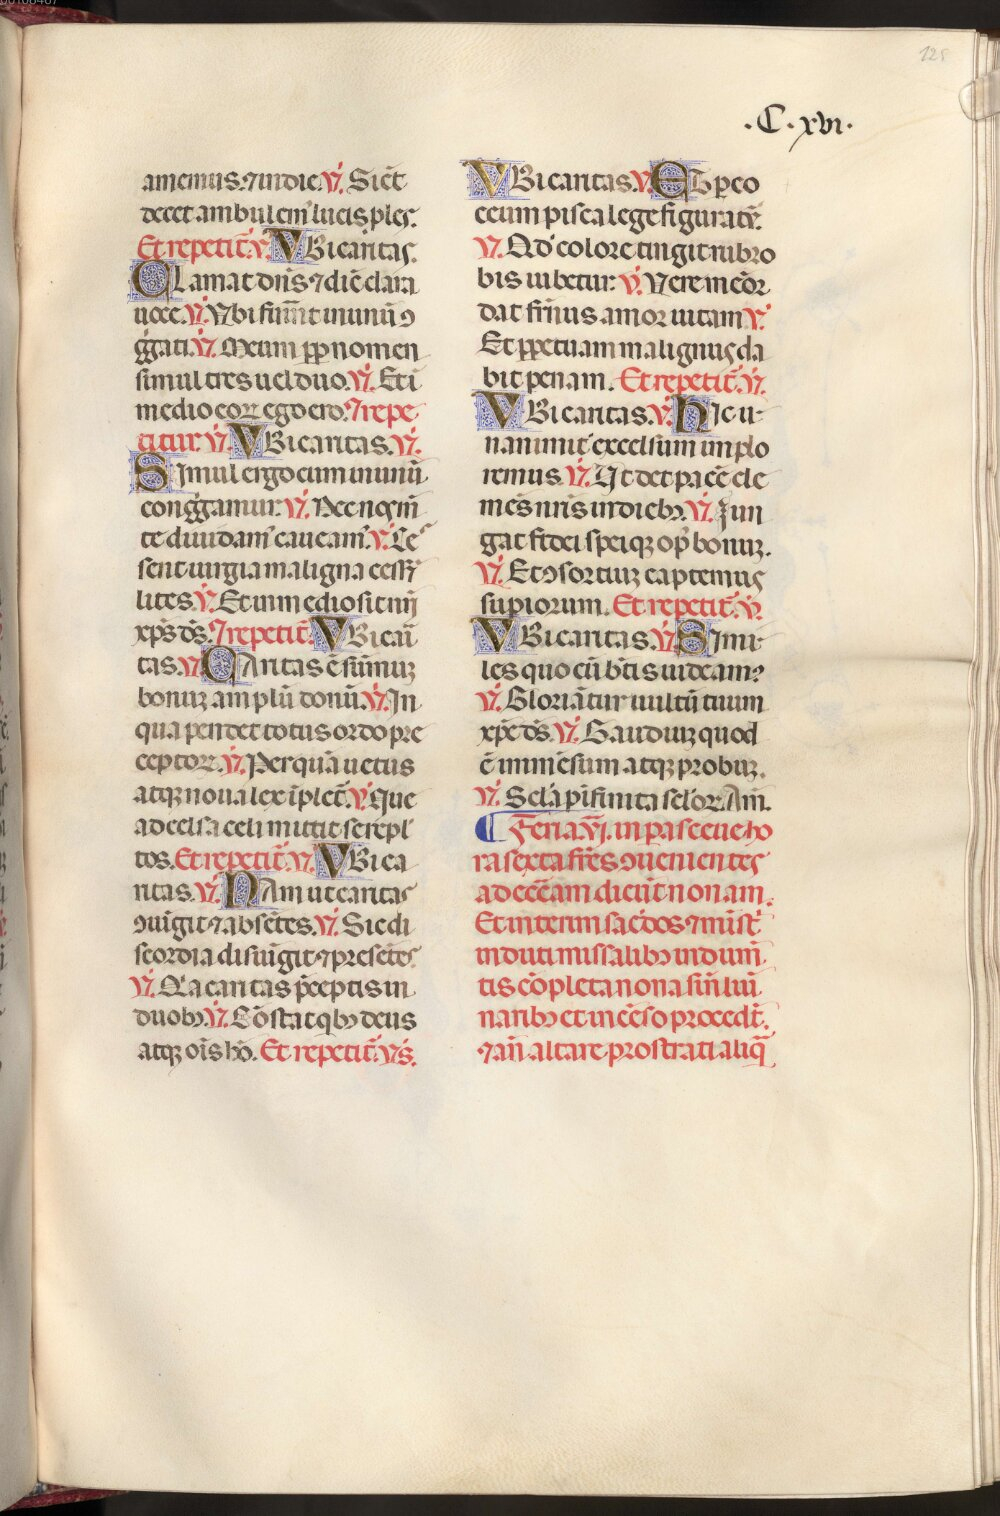 128
.C.xvi.
amemus. ⁊ in die. V̄. Sic̄t
decet ambulem̄ lucis ples̄.
Et repetit̄. v̄. VBi caritas.
CLamat dn̄s ⁊ dic̄ clara
uoce. V̄. Vbi fuīnt in unū ↄ
g̃gati. V̄. Meum pp̄ nomen
simul tres uel duo. V̄. Et ī
medio eoꝝ ego ero. ⁊ repe
titur. V̄. VBi caritas. V̄.
SImul ergo cum in unū
cong̃gamur. V̄. Ne nos m̄
te diuidam̄ caueam̄. V̄. Ce
sent iurgia maligna cess̄t
lites. V̄. Et in medio sit nr̄i
xp̄s ds̄. ⁊ repetit̄. VBi cari
tas. V̄. CAritas ē sūmuꝫ
bonuꝫ amplū donū. V̄. In
qua pendet totus ordo pre
ceptoꝝ. V̄. Per quā uetus
atqꝫ noua lex īplet̄. V̄. Que
ad celsa celi mittit se repl̄
tos. Et repetit̄. V̄. VBi ca
ritas. V̄. NAm ut caritas
ↄiūgit ⁊ absēt̄es. V̄. Sic di
scordia disiūgit ⁊ preset̄es.
V̄. Na caritas p̄ceptis in
duobꝫ. V̄. Cōstat qbꝫ deus
atqꝫ oīs hō. Et repetit̄. Vs̄.
VBi caritas. V̄. ES peo
ceum pisca lege figurat̄r.
V̄. Qd̄ colore tingit rubro
bis iubetur. V̄. Vt rememor
dat frīnus amor uitam V̄.
Et ppetuam malignus da
bit penam. Et repetit̄. V̄.
VBi caritas. V̄. HIc u-
nanimit̄ excelsum implo
remus. V̄. Ut det pacē cle
mēs nr̄is in diebꝫ. V̄. Iun
gat fidei speiqꝫ op̄ bonuꝫ.
V̄. Et ↄsortiuꝫ captemus
supiorum. Et repetit̄. V̄.
VBi caritas. V̄. SImu-
les quo cū bt̄is uideam⁹
V̄. Gloriāt̄ur uultū tuum
xp̄e ds̄. V̄. Gaudiuꝫ quod
ē immēsum atqꝫ probuꝫ.
V̄. Scl̄a p īfinita scl̄oꝝ. Am̄.
¶ Feria. VI. in pasceue ho
ra sexta fr̄es ↄuenientes
ad ecc̄am dicūt nonam.
Et interim sac̄dos ⁊ minist̄
induti missalibꝫ indum̄
tis cōpleta nona sin̄ lūi
naribꝫ et incēso procedt̄.
⁊ an̄ altare prostrati aliq̄